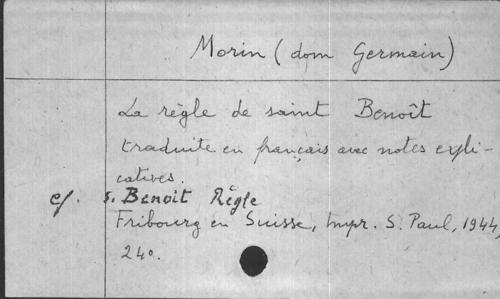 Morin (dom Germain)
La règle de saint Benoît
traduite en français avec notes expli-
catives.
cf. s. Benoit Règle
Fribourg en Suisse, Impr. S. Paul, 1944,
24o.